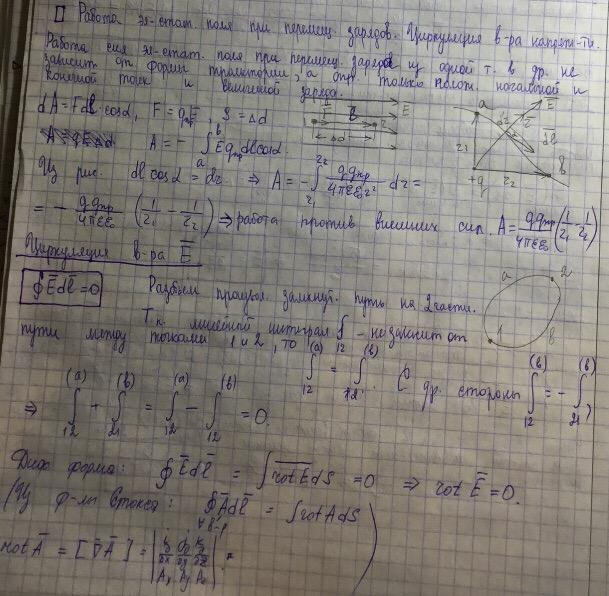 Работа эл-стат. поля при перемещ. зарядов. Циркуляция в-ра напряж-ти.
Работа сил эл-стат. поля при перемещ. зарядов из одной т. в др. не
зависит от формы траектории, а опр. только полож. начальной и
конечной точек и величиной заряда.
dA = Fdl·cosα, F = qпрE, S = Δd
A = - ∫ₐᵇ E qпр dl cosα.
Из рис. dl cosα = dr. ⇒ A = - ∫ r₁ r₂ qqпр/4πεε₀r² dr =
= - qqпр/4πεε₀ (1/r₁ - 1/r₂) ⇒ работа против внешних сил. A = qqпр/4πεε₀ (1/r₁ - 1/r₂)
Циркуляция в-ра E̅
∮E̅dl̅ = 0 Разбьем произвол. замкнут. путь на 2 части.
Т.к. линейный интеграл ∫₁₂ - не зависит от
пути между точками 1 и 2, то ∫₁₂⁽ᵃ⁾ = ∫₁₂⁽ᵇ⁾. С др. стороны ∫₁₂⁽ᵇ⁾ = - ∫₂₁⁽ᵇ⁾,
⇒ ∫₁₂⁽ᵃ⁾ + ∫₂₁⁽ᵇ⁾ = ∫₁₂⁽ᵃ⁾ - ∫₁₂⁽ᵇ⁾ = 0.
Диф форма: ∮E̅dl̅ = ∫rot E̅dS = 0 ⇒ rot E̅ = 0.
(Из ф-лы Стокса: ∮A̅dl̅ = ∫rotAdS)
rot A̅ = [∇̅A̅] =
E̅
a
E̅
dl̅
r₁
+q
r₂
b
a
2
1
b